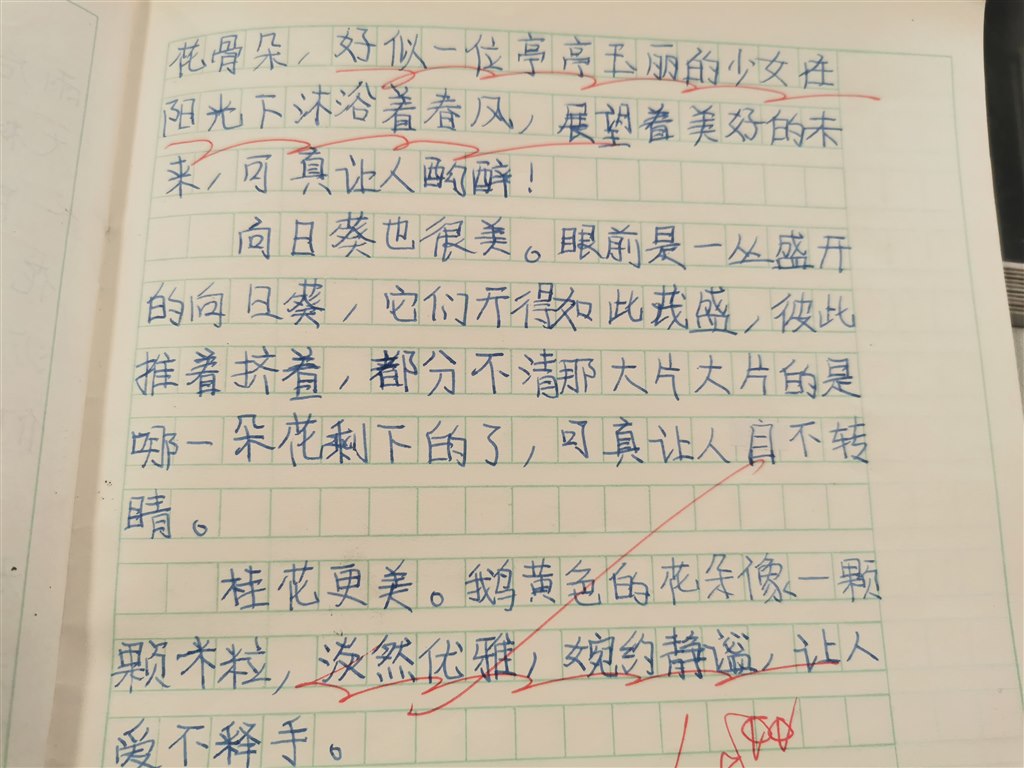 花骨朵，好似一位亭亭玉丽的少女在
阳光下沐浴着春风，展望着美好的未
来，可真让人陶醉！
向日葵也很美。眼前是一丛盛开
的向日葵，它们开得如此茂盛，彼此
推着挤着，都分不清那大片大片的是
哪一朵花剩下的了，可真让人目不转
睛。
桂花更美。鹅黄色的花朵像一颗
颗米粒，淡然优雅，婉约静谧，让人
爱不释手。